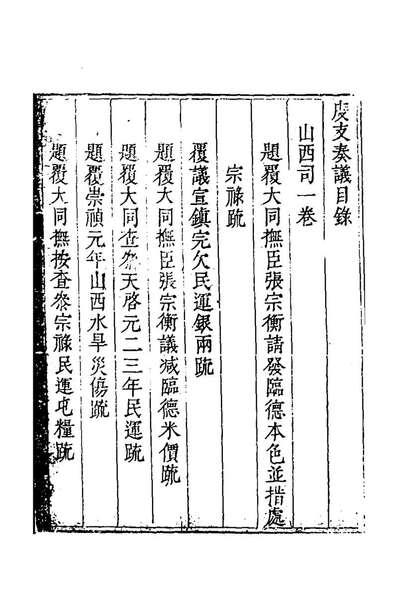 度支奏議目錄
山西司一卷
題覆大同撫臣張宗衡請發臨德本色並措處
宗祿疏
覆議宣鎮完欠民運銀兩疏
題覆大同撫臣張宗衡議減臨德米價疏
題覆大同查叅天啓元二三年民運疏
題覆崇禎元年山西水旱災傷疏
題覆大同撫按查叅宗祿民運屯糧疏